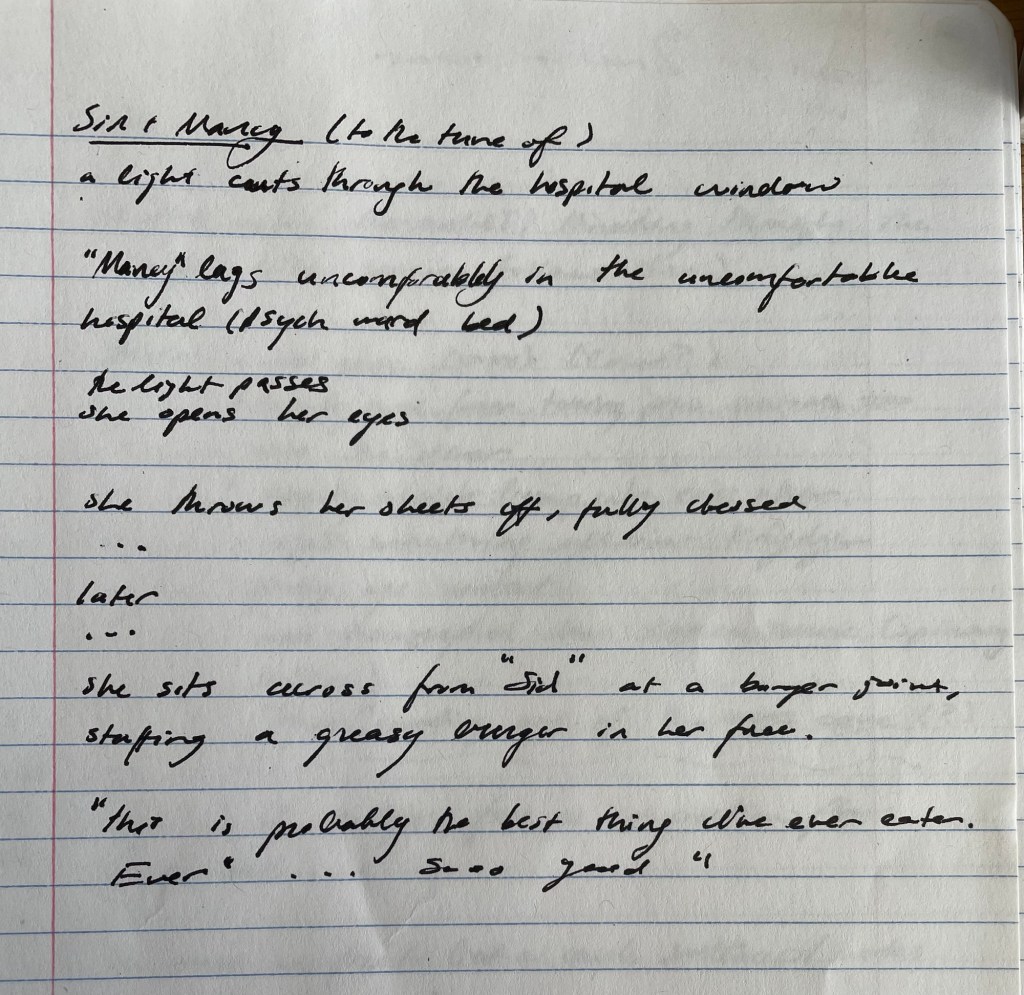 Sin + Mancy (to the tune of)
a light cuts through the hospital window
"Mancy" lays uncomfortably in the uncomfortable
hospital (psych ward bed)
the light passes
she opens her eyes
she throws her sheets off, fully dressed
...
later
...
she sits across from "Sid" at a burger joint,
stuffing a greasy burger in her face.
"this is probably the best thing I've ever eaten.
Ever" ... Sooo good "